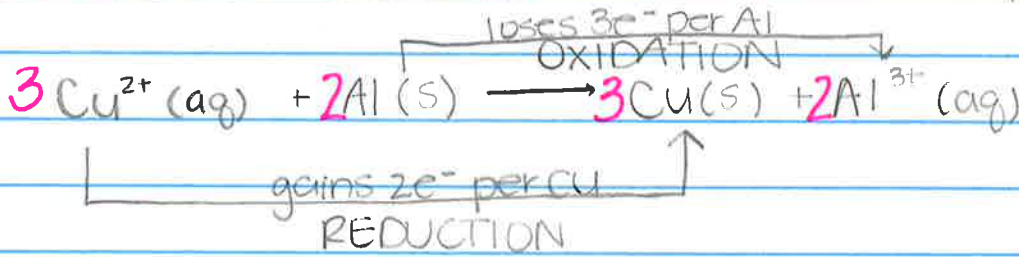 loses 3e⁻ per Al
OXIDATION
3Cu²⁺ (aq) + 2Al (s) ⟶ 3Cu(s) + 2Al³⁺ (aq)
gains 2e⁻ per Cu
REDUCTION